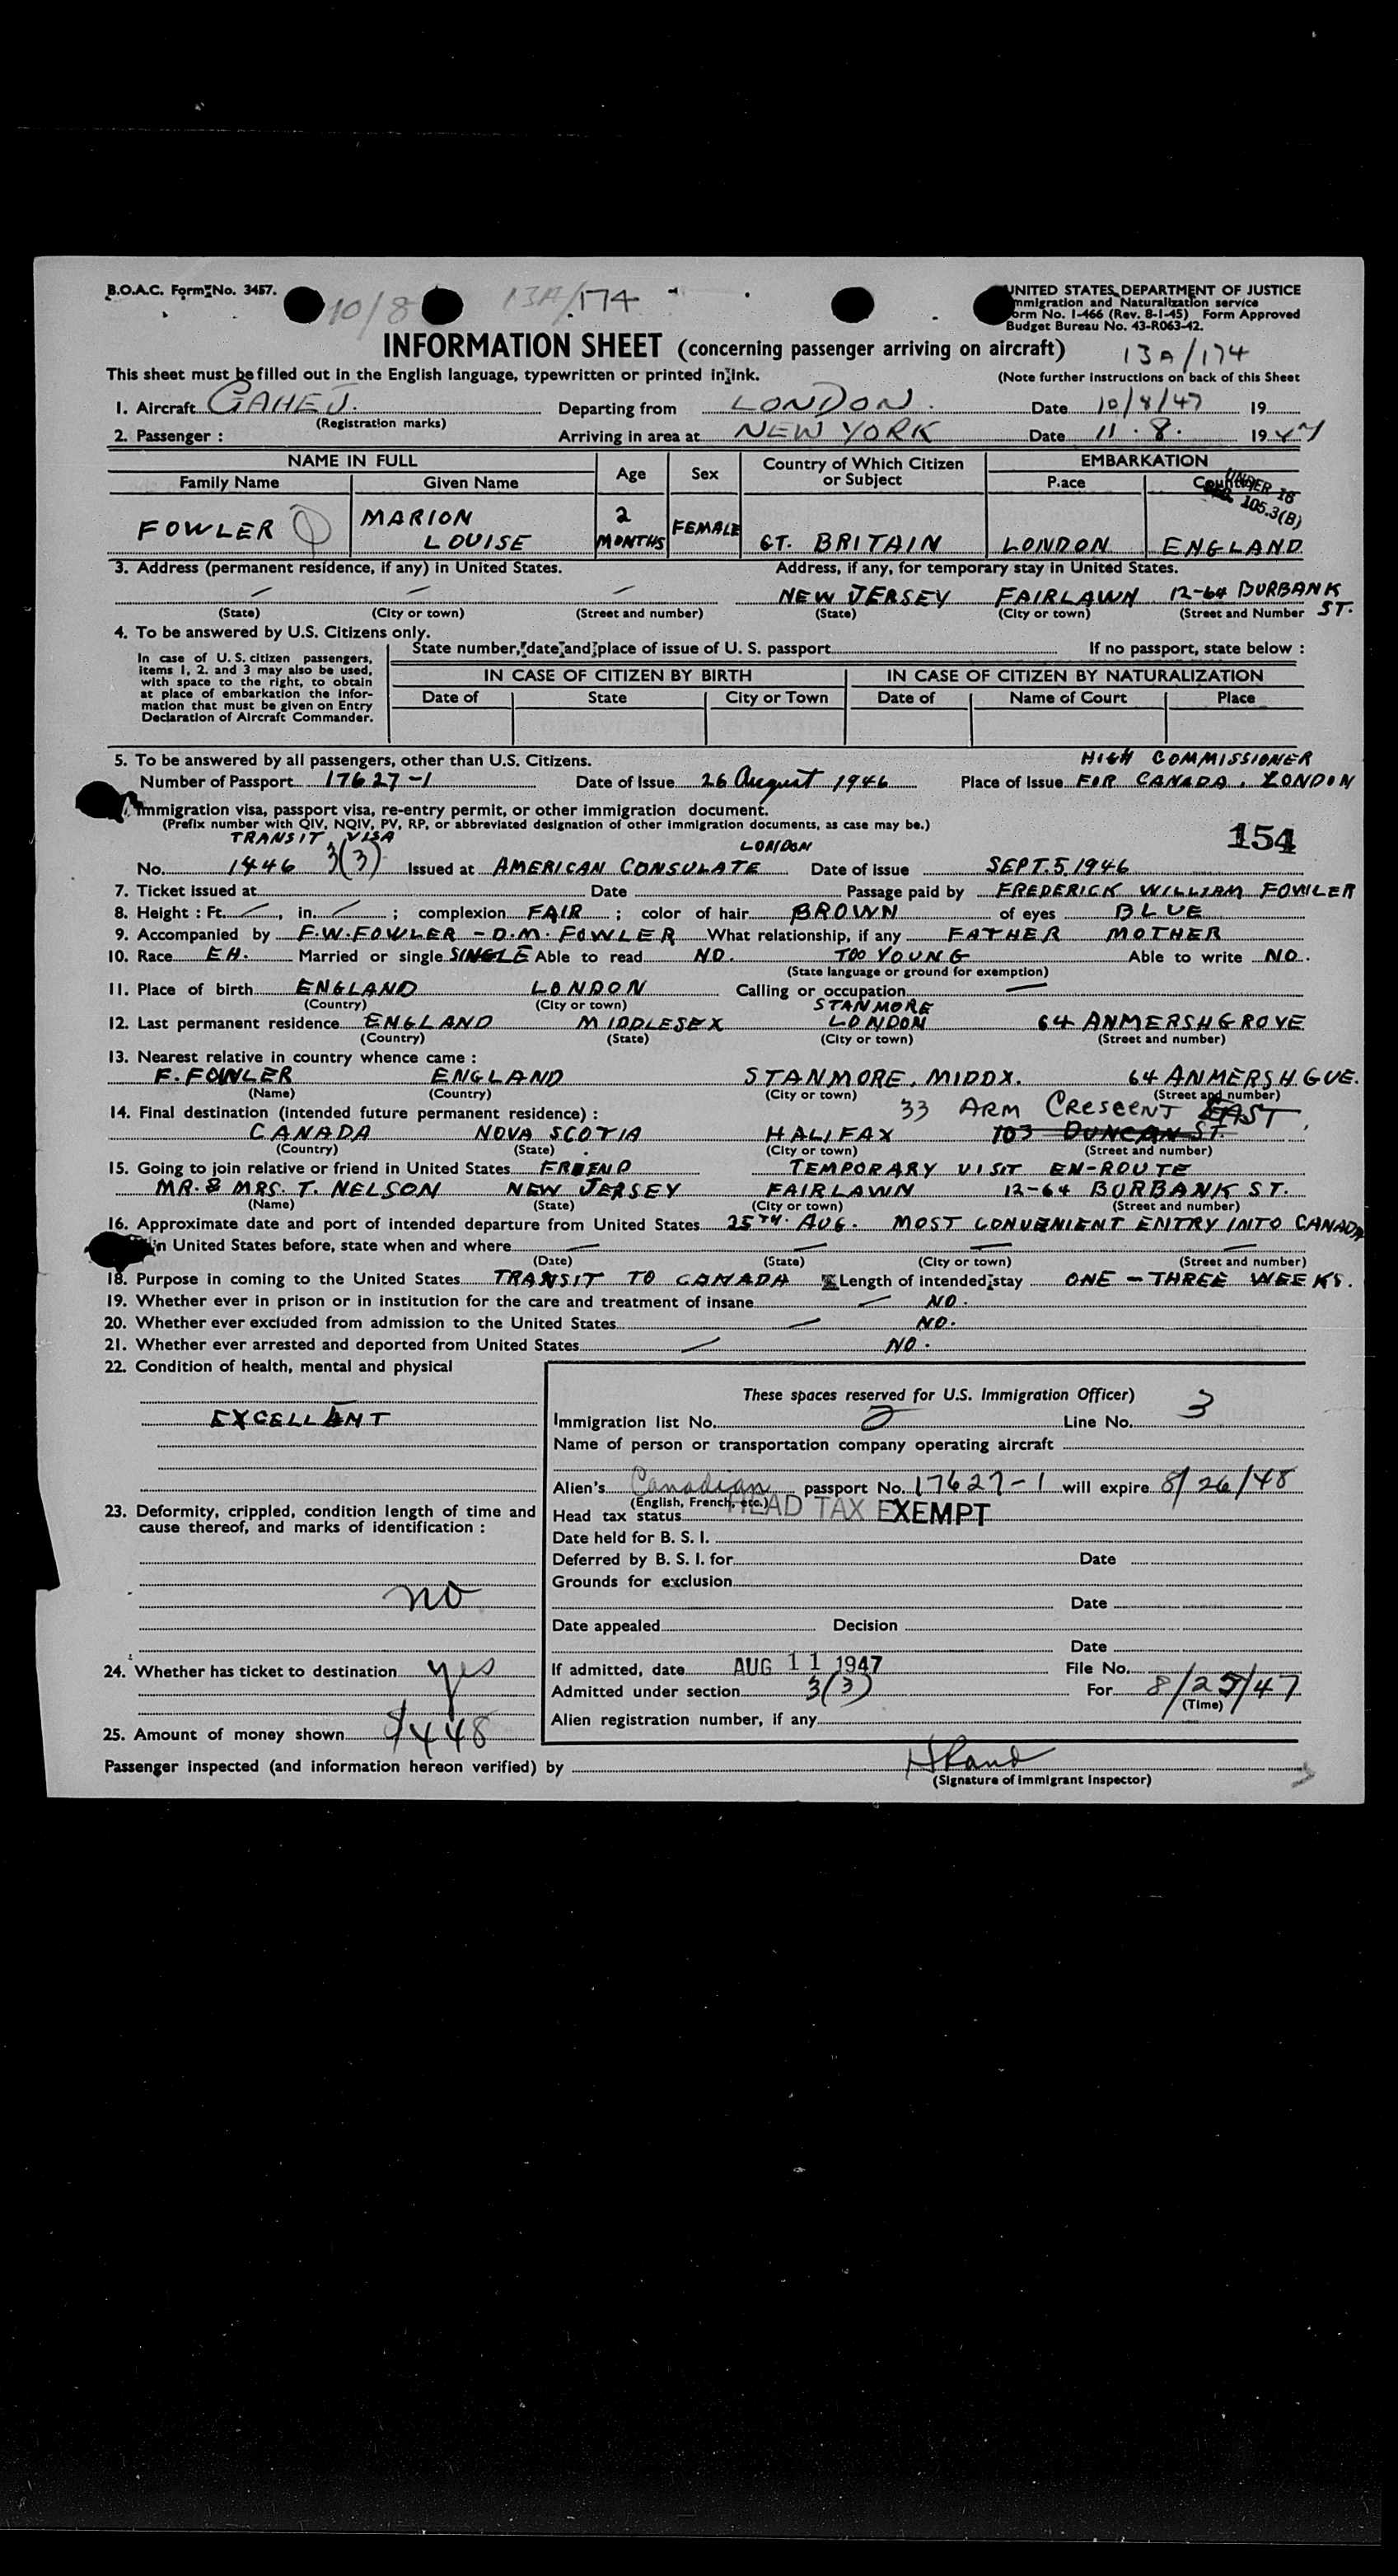 B.O.A.C. Form No. 3457.
10/8 13A/174
UNITED STATES DEPARTMENT OF JUSTICE
Immigration and Naturalization service
Form No. I-466 (Rev. 8-1-45) Form Approved
Budget Bureau No. 43-R063-42.
INFORMATION SHEET (concerning passenger arriving on aircraft) 13A/174
This sheet must be filled out in the English language, typewritten or printed in ink. (Note further instructions on back of this Sheet
1. Aircraft GAHEJ. Departing from LONDON. Date 10/8/47 19
(Registration marks)
2. Passenger : Arriving in area at NEW YORK Date 11.8. 1947
NAME IN FULL Age Sex Country of Which Citizen or Subject EMBARKATION
Family Name Given Name Place Country
UNDER 16
SEC. 105.3(B)
FOWLER MARION LOUISE 2 MONTHS FEMALE GT. BRITAIN LONDON ENGLAND
3. Address (permanent residence, if any) in United States. Address, if any, for temporary stay in United States.
— — — NEW JERSEY FAIRLAWN 12-64 BURBANK ST.
(State) (City or town) (Street and number) (State) (City or town) (Street and Number
4. To be answered by U.S. Citizens only.
In case of U.S. citizen passengers, items 1, 2. and 3 may also be used, with space to the right, to obtain at place of embarkation the information that must be given on Entry Declaration of Aircraft Commander.
State number, date and place of issue of U. S. passport If no passport, state below :
IN CASE OF CITIZEN BY BIRTH IN CASE OF CITIZEN BY NATURALIZATION
Date of State City or Town Date of Name of Court Place
5. To be answered by all passengers, other than U.S. Citizens. HIGH COMMISSIONER
Number of Passport 17627-1 Date of Issue 26 August 1946 Place of Issue FOR CANADA. LONDON
Immigration visa, passport visa, re-entry permit, or other immigration document.
(Prefix number with QIV, NQIV, PV, RP, or abbreviated designation of other immigration documents, as case may be.)
TRANSIT VISA LONDON 154
No. 1446 3(3) Issued at AMERICAN CONSULATE Date of issue SEPT. 5, 1946
7. Ticket issued at Date Passage paid by FREDERICK WILLIAM FOWLER
8. Height : Ft. —, in. — ; complexion FAIR ; color of hair BROWN of eyes BLUE
9. Accompanied by F.W. FOWLER - D.M. FOWLER What relationship, if any FATHER MOTHER
10. Race EH. Married or single SINGLE Able to read NO. TOO YOUNG Able to write NO.
(State language or ground for exemption)
11. Place of birth ENGLAND LONDON Calling or occupation —
(Country) (City or town)
STANMORE
12. Last permanent residence ENGLAND MIDDLESEX LONDON 64 ANMERSH GROVE
(Country) (State) (City or town) (Street and number)
13. Nearest relative in country whence came :
F. FOWLER ENGLAND STANMORE, MIDDX. 64 ANMERSH GVE.
(Name) (Country) (City or town) (Street and number)
33 ARM CRESCENT EAST
14. Final destination (intended future permanent residence) :
CANADA NOVA SCOTIA HALIFAX 103 DUNCAN ST.
(Country) (State) (City or town) (Street and number)
15. Going to join relative or friend in United States FRIEND TEMPORARY VISIT EN-ROUTE
MR. & MRS. T. NELSON NEW JERSEY FAIRLAWN 12-64 BURBANK ST.
(Name) (State) (City or town) (Street and number)
16. Approximate date and port of intended departure from United States 25TH. AUG. MOST CONVENIENT ENTRY INTO CANADA
in United States before, state when and where — — — —
(Date) (State) (City or town) (Street and number)
18. Purpose in coming to the United States TRANSIT TO CANADA Length of intended stay ONE - THREE WEEKS.
19. Whether ever in prison or in institution for the care and treatment of insane — NO.
20. Whether ever excluded from admission to the United States — NO.
21. Whether ever arrested and deported from United States — NO.
22. Condition of health, mental and physical
EXCELLENT
23. Deformity, crippled, condition length of time and cause thereof, and marks of identification :
no
24. Whether has ticket to destination yes
25. Amount of money shown $448
These spaces reserved for U.S. Immigration Officer)
Immigration list No. 2 Line No. 3
Name of person or transportation company operating aircraft
Alien's Canadian passport No. 17627-1 will expire 8/26/48
(English, French, etc.)
Head tax status HEAD TAX EXEMPT
Date held for B. S. I.
Deferred by B. S. I. for Date
Grounds for exclusion
Date
Date appealed Decision
Date
If admitted, date AUG 11 1947 File No.
Admitted under section 3(3) For 8/25/47
(Time)
Alien registration number, if any
Passenger inspected (and information hereon verified) by
(Signature of Immigrant Inspector)